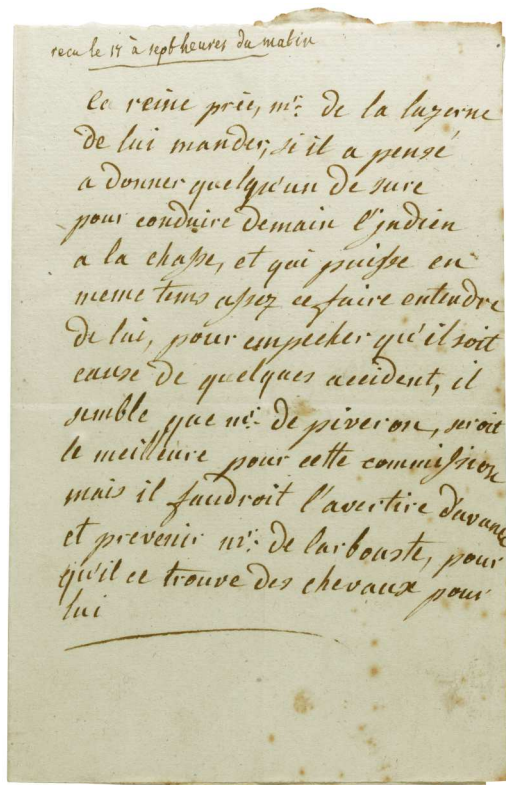 recu le 17 à sept heures du matin
la reine prie, mr. de la luzerne
de lui mander, si il a pensé
a donner quelqu'un de sure
pour conduire demain l'jndien
a la chasse, et qui puisse en
meme tems assez ce faire entendre
de lui, pour empecher qu'il soit
cause de quelques accident, il
semble que mr. de piveron, seroit
le meilleure pour cette commission
mais il faudroit l'avertire d'avance
et prevenir mr. de larbouste, pour
qu'il ce trouve des chevaux pour
lui